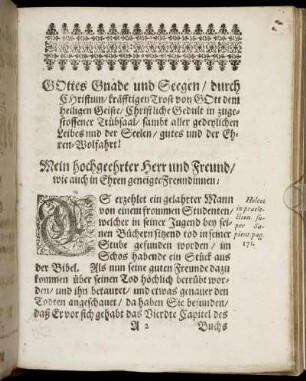 GOttes Gnade und Seegen/ durch
Christum/ kräfftigen Trost von GOtt dem
heiligen Geiste/ Christliche Gedult in zuge-
stossener Trübsaal/ sambt aller gedeylichen
Leibes und der Seelen/ gutes und der Eh-
ren-Wolfahrt!
Mein hochgeehrter Herr und Freund/
wie auch in Ehren geneigte Freundinnen:
ES erzehlet ein gelahrter Mann
von einem frommen Studenten/
welcher in seiner Jugend bey sei-
nen Büchern sitzend tod in seiner
Stube gefunden worden/ im
Schos habende ein Stück aus
der Bibel. Als nun seine guten Freunde dazu
kommen über seinen Tod höchlich betrübt wor-
den/ und ihn betauret/ und etwas genauer den
Todten angeschauet/ da haben Sie befunden/
daß Er vor sich gehabt das Vierdte Capitel des
A 2 Buchs
in praele-
ction. su-
per Sa-
pient. pag.
171.